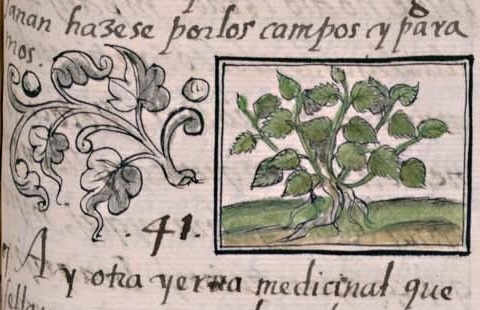 anan hazese por los campos y para
mos.
.41.
Ay otra yerua medicinal que